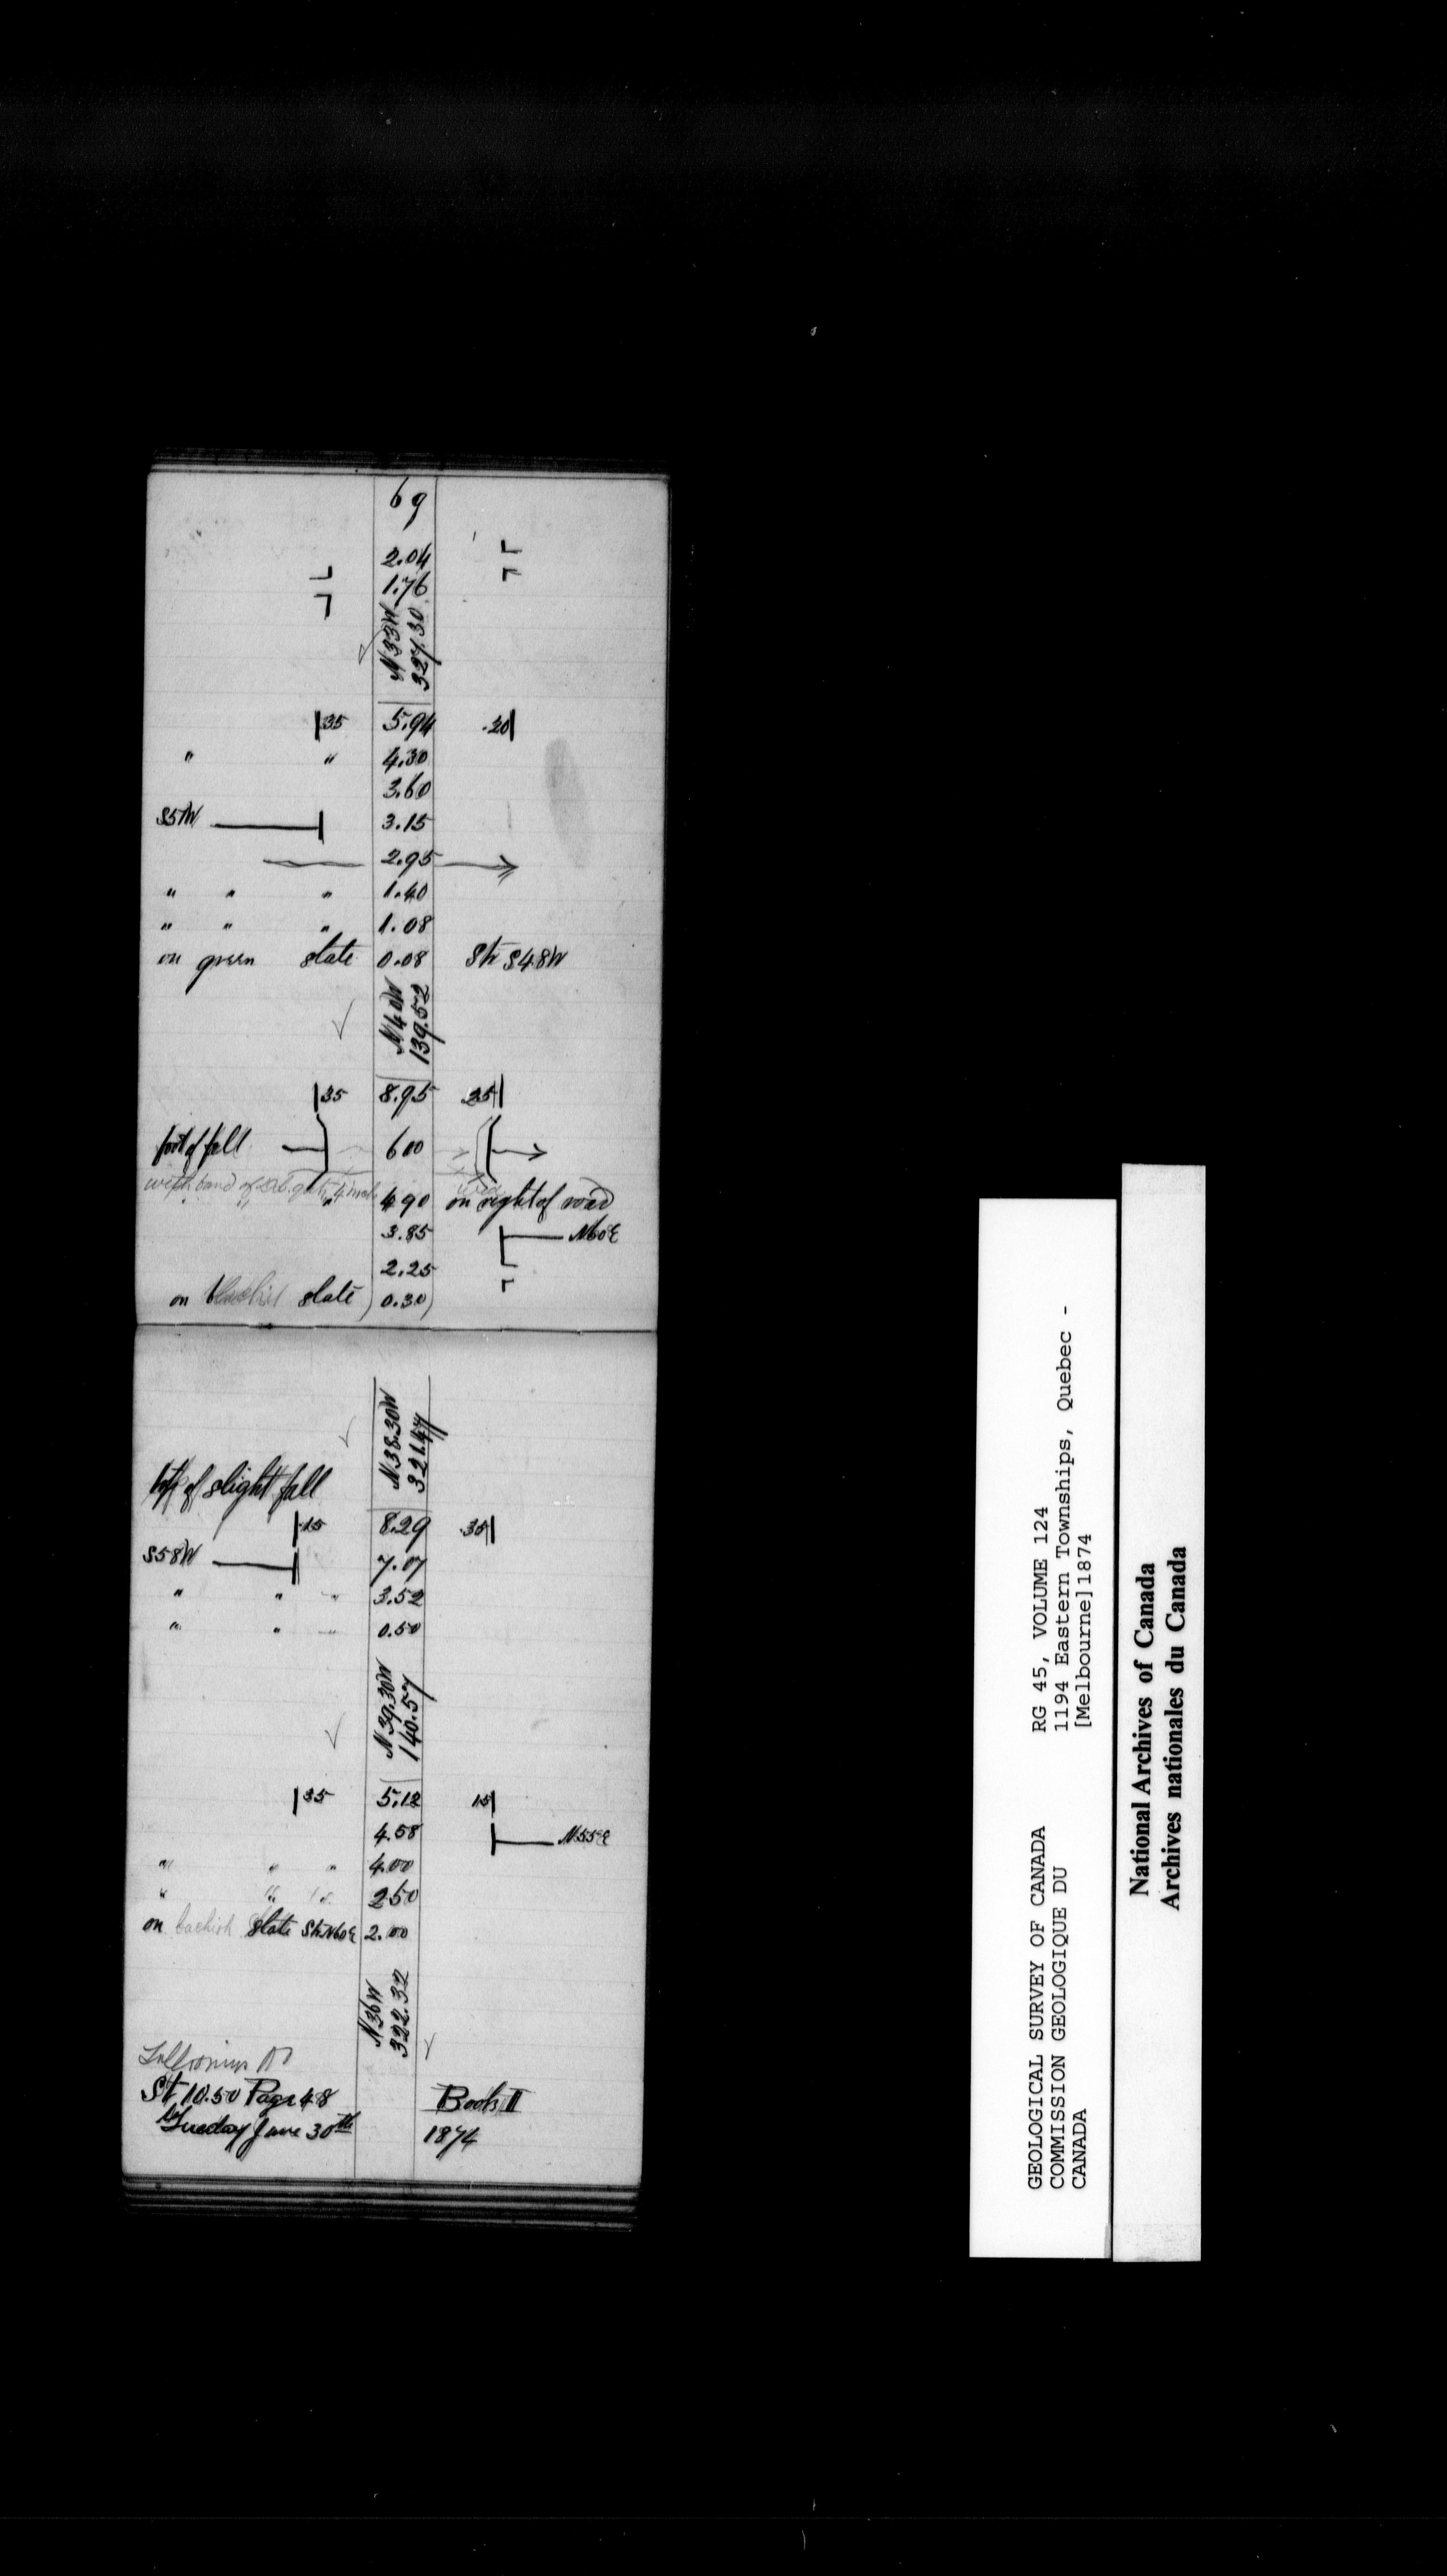 69
2.04
1.76
N33W
327.30
35 5.94 .20
" " 4.30
3.60
S51W 3.15
2.95
" " " 1.40
" " " 1.08
on green slate 0.08 Str S48W
N40W
139.52
35 8.95 25
foot of fall 6 00
with band of
" " " 4.90 on right of road
3.85 N60E
2.25
on slate 0.30
N38.30W
321.47
top of slight fall
.15 8.29 .35
S58W 7.07
" " " 3.52
" " " 0.50
N39.30W
140.57
35 5.12 15
4.58 N55E
" " " 4.00
" " " 2 50
on slate Str N60E 2.00
N36W
322.32
St 10.50 Page 48 Book II
Tuesday June 30th 1874
GEOLOGICAL SURVEY OF CANADA
COMMISSION GEOLOGIQUE DU
CANADA
RG 45, VOLUME 124
1194 Eastern Townships, Quebec -
[Melbourne]1874
National Archives of Canada
Archives nationales du Canada